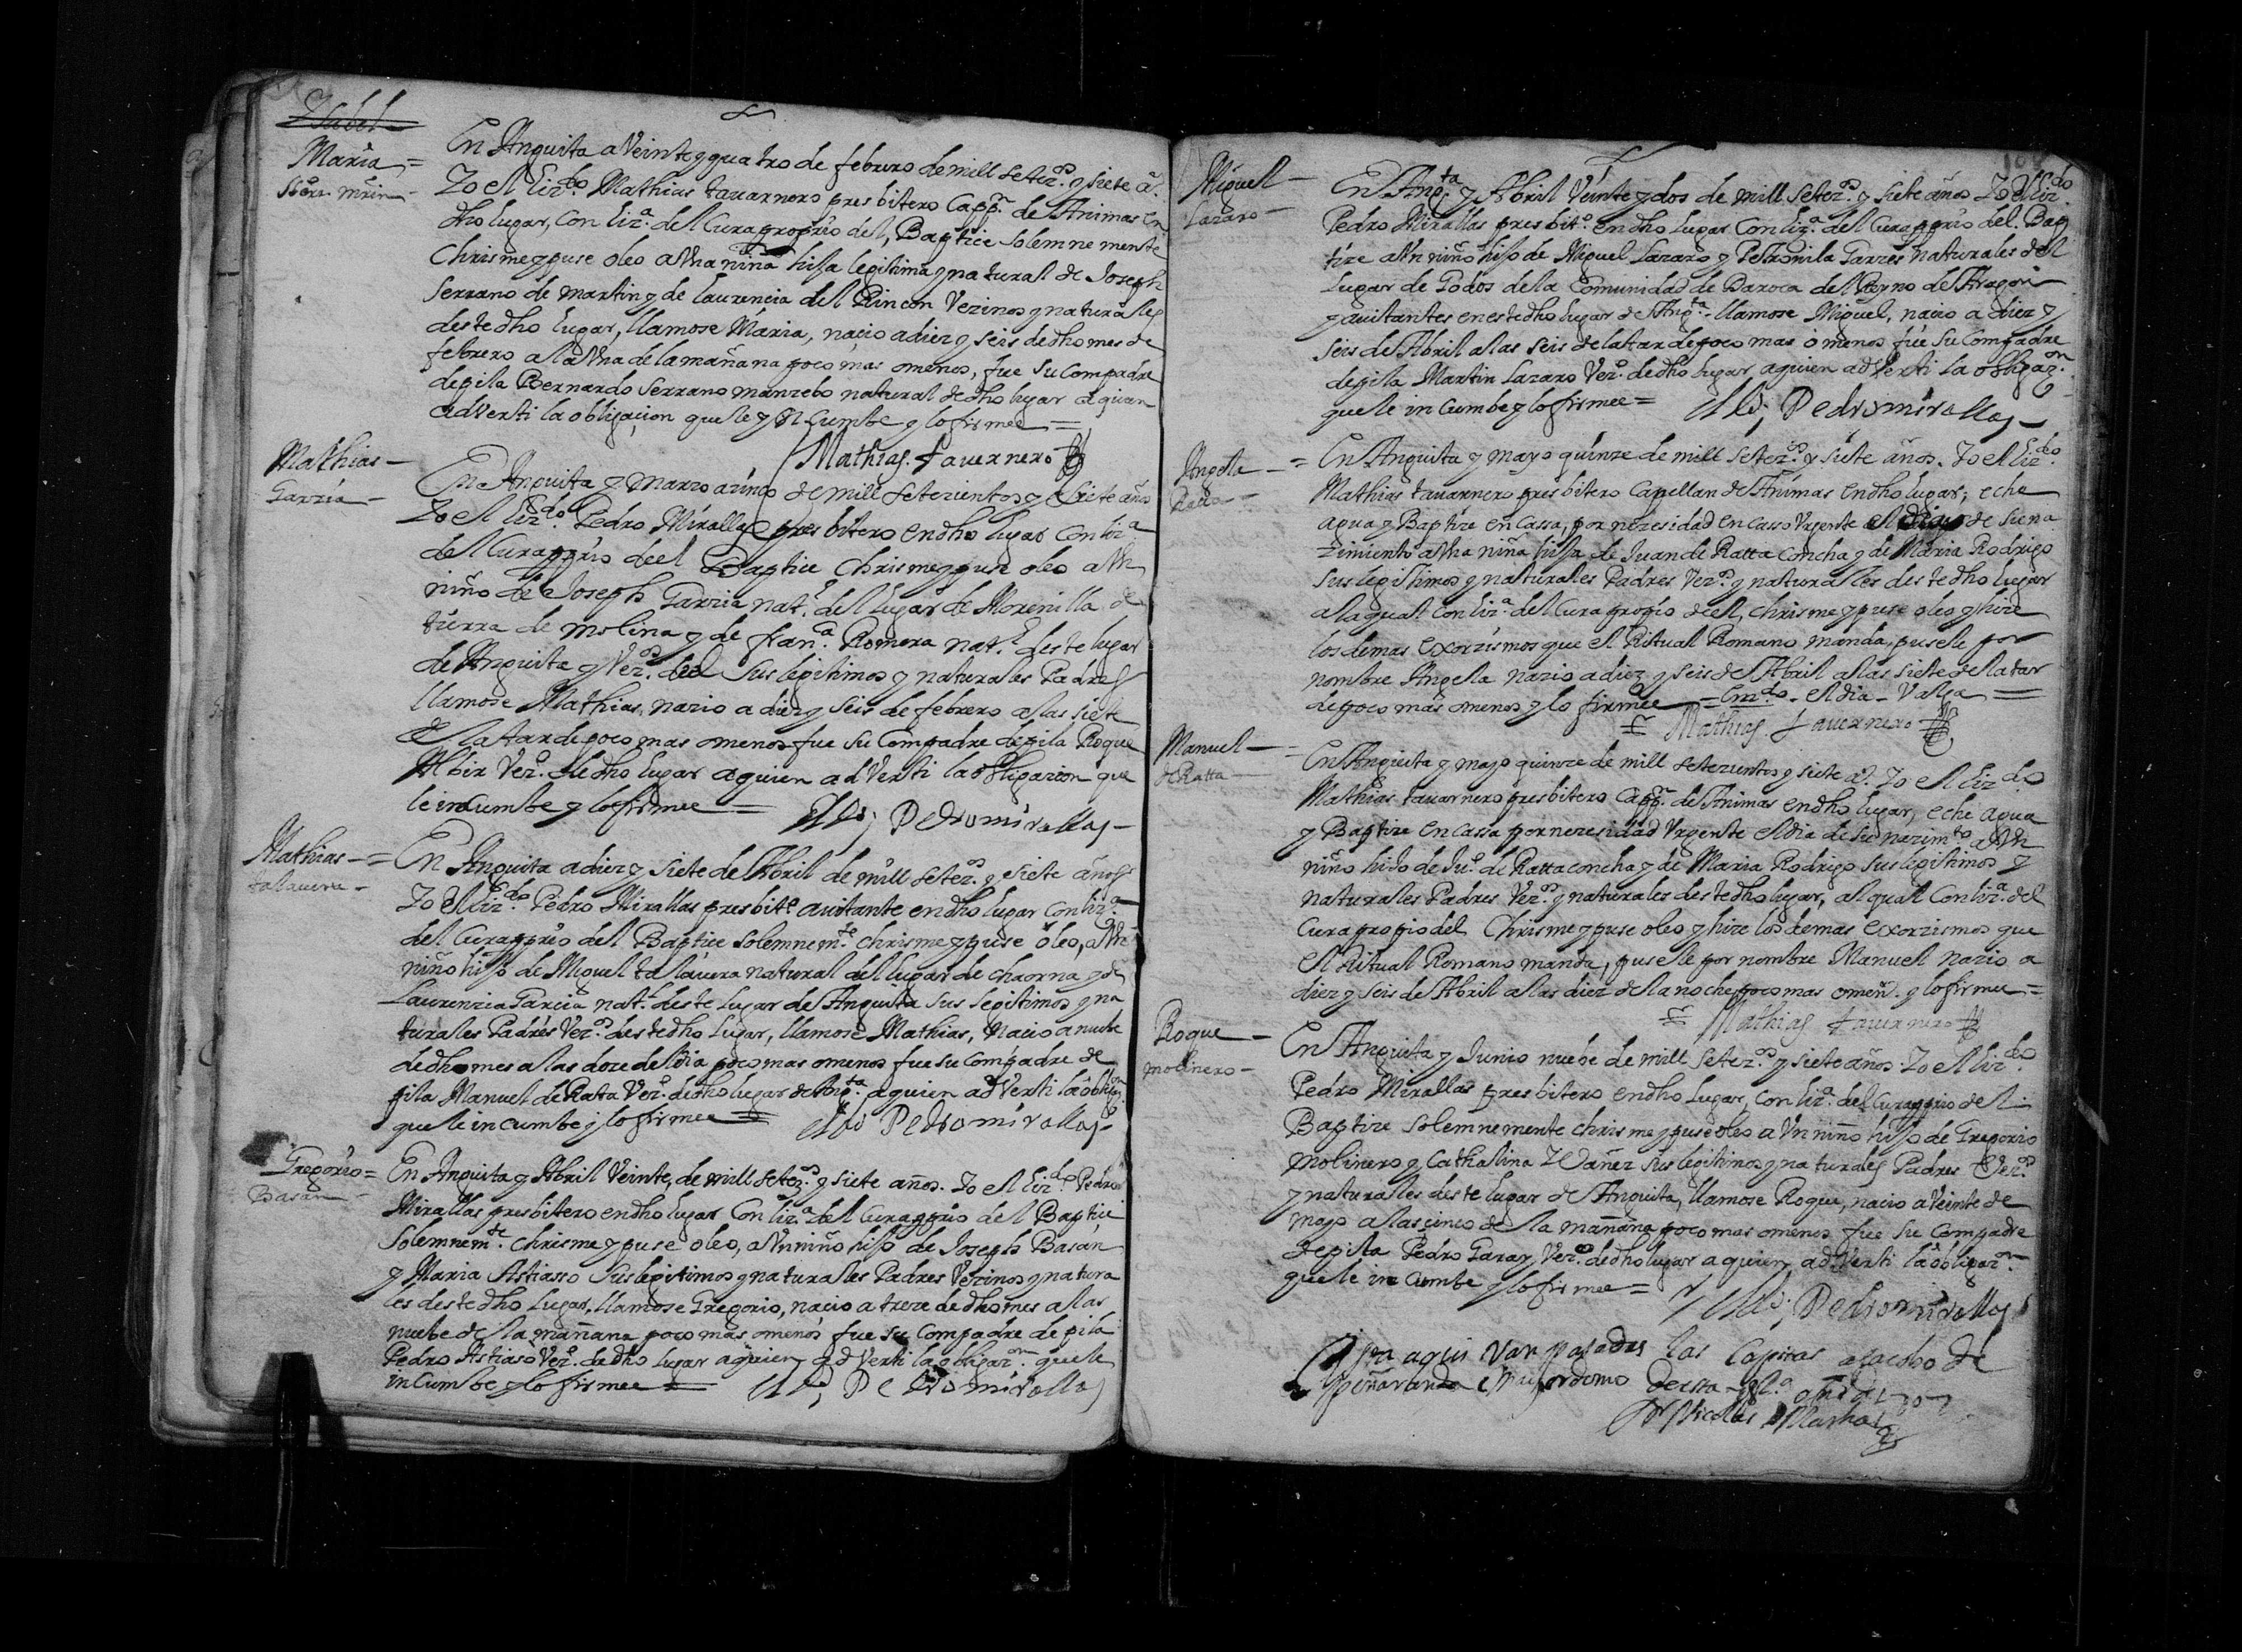 Ysabel
Maria =
Serr. mrin -
En Anguita a Veinte y quatro de febrero de mill setez.os y siete a.s
Yo el Liz.do Mathias tauarnero presbitero Capp.n de Animas en
dho lugar, con liz.a del Cura proprio del, Baptice solemne mente
Chrisme y puse oleo a Vna niña hissa legitima y natural de Joseph
Serrano de martin y de Laurencia del Rincon Vezinos y naturalles
deste dho lugar, llamose Maria, nacio a diez y seis de dho mes de
febrero a la Vna de la mañana poco mas omenos, fue su Compadre
de pila Bernardo Serrano manzebo natural de dho lugar a quien
adverti la obligaçion que le yncumbe y lo firmee =
Mathias tauernero
Mathias -
Garzia -
En Anguita y Marzo a zinco de mill setezientos y siete años
Yo el Liz.do Pedro Mirallas presbitero en dho lugar con liz.a
del Cura pprio de el Baptice Chrisme y puse oleo a Vn
niño de Joseph Garzia nat.l del lugar de Morenilla de
tierra de Molina y de fran.ca Romera nat.l deste lugar
de Anguita y Vez.os del sus legitimos y naturales Padres
llamose Mathias, nazio a diez y seis de febrero a las siete
de la tarde poco mas omenos fue su Compadre de pila Roque
Albir Vez.o de dho lugar a quien adVerti la obligazion que
le incumbe y lo firmee = Pedro mirallas -
Mathias - =
talauera -
En Anguita a diez y siete de Abril de mill setez.os y siete años
Yo el Liz.do Pedro Mirallas presbit.o auitante en dho lugar con liz.a
del Cura pprio del Baptice solemnem.te chrisme y puse oleo, a Vn
niño hijo de Miguel talauera natural del lugar de chaorna y de
Laurenzia Garcia nat.l deste lugar de Anguita sus legitimos y na
turales Padres Vez.os deste dho lugar, llamose Mathias, nacio a nuebe
de dho mes a las doze del dia poco mas omenos fue su Compadre de
pila Manuel de Ratta Vez.o de dho lugar de Ang.ta a quien adVerti la oblig.on
que le incumbe y lo firmee = Pedro mirallas
Gregorio =
Basan -
En Anguita y Abril Veinte, de mill setez.os y siete años. Yo el Liz.do Pedro
Mirallas presbitero en dho lugar con liz.a del Cura pprio del Baptice
Solemnem.te chrisme y puse oleo, a Vn niño hijo de Joseph Basan
y Maria Astiasso sus legitimos y naturales Padres Vezinos y natura
les deste dho lugar, llamose Gregorio, nacio a treze de dho mes a las
nuebe de la mañana poco mas omenos fue su Compadre de pila
Pedro Astiaso Vez.o de dho lugar a quien adVerti la obligaz.on que le
inCumbe y lo firmee = Pedro mirallas
Miguel -
Lazaro -
En Ang.ta y Abril Veinte y dos de mill setez.os y siete años Yo el Liz.do
Pedro Mirallas presbit.o en dho lugar con liz.a del Cura pprio del. Bap
tize a Vn niño hijo de Miguel Lazaro y Petronila Garzes naturales del
Lugar de Godos de la Comunidad de Daroca del Reyno de Aragon
y auitantes en este dho lugar de Ang.ta llamose Miguel, nacio a diez y
seis de Abril a las seis de la tarde poco mas ò menos fue su Compadre
de pila Martin Lazaro Vez.o de dho lugar a quien adVerti la obligaz.on
que le inCumbe y lo firmee = Pedro mirallas -
Angela - =
Ratta -
En Anguita y mayo quinze de mill setez.os y siete años. Yo el Liz.do
Mathias tauarnero presbitero Capellan de Animas en dho lugar; eche
agua y Baptize en cassa, por nezesidad en casso Vrgente el de su na
zimiento a Vna niña hissa de Juan de Ratta concha y de Maria Rodrigo
sus legitimos y naturales Padres Vez.os y naturalles deste dho lugar
a la qual con liz.a del Cura propio de el, chrisme y puse oleo y hize
los demas exorzismos que el Ritual Romano manda, pusele por
nombre Angela nazio a diez y seis de Abril a las siete de la tar
de poco mas omenos y lo firmee = Em.do - el dia - Valga =
Mathias tauernero
Manuel - =
de Ratta -
En Anguita y mayo quinze de mill setezientos y siete a.s Yo el Liz.do
Mathias tauarnero presbitero Capp.n de Animas en dho lugar, eche agua
y Baptize en cassa por nezesidad Vrgente el dia de su nazim.to a Vn
niño hijo de Ju.o de Ratta concha y de Maria Rodrigo sus legitimos y
naturales Padres Vez.os y naturales deste dho lugar, al qual con liz.a del
Cura propio del Chrisme y puse oleo y hize los demas exorzismos que
el Ritual Romano manda, pusele por nombre Manuel nazio a
diez y seis de Abril a las diez de la noche poco mas omen.s y lo firmee =
Mathias tauernero
Roque -
molinero -
En Anguita y Junio nuebe de mill setez.os y siete años. Yo el Liz.do
Pedro Mirallas presbitero en dho lugar, con liz.a del Cura pprio del
Baptize solemnemente chrisme y puse oleo a Vn niño hijo de Gregorio
Molinero y Cathalina Ybañez sus legitimos y naturales Padres Vez.os
y naturalles deste lugar de Anguita, llamose Roque, nacio a Veinte de
mayo a las çinco de la mañana poco mas omenos fue su Compadre
de pila Pedro Garay Vez.o de dho lugar a quien adVerti la obligaz.on
que le in Cumbe y lo firmee = Pedro mirallas
asta aqui van pasadas las Capitas a Jacobo de
peñaranda Mayordomo desta Ygl.a año de 1707
D.r Nicolas Macho